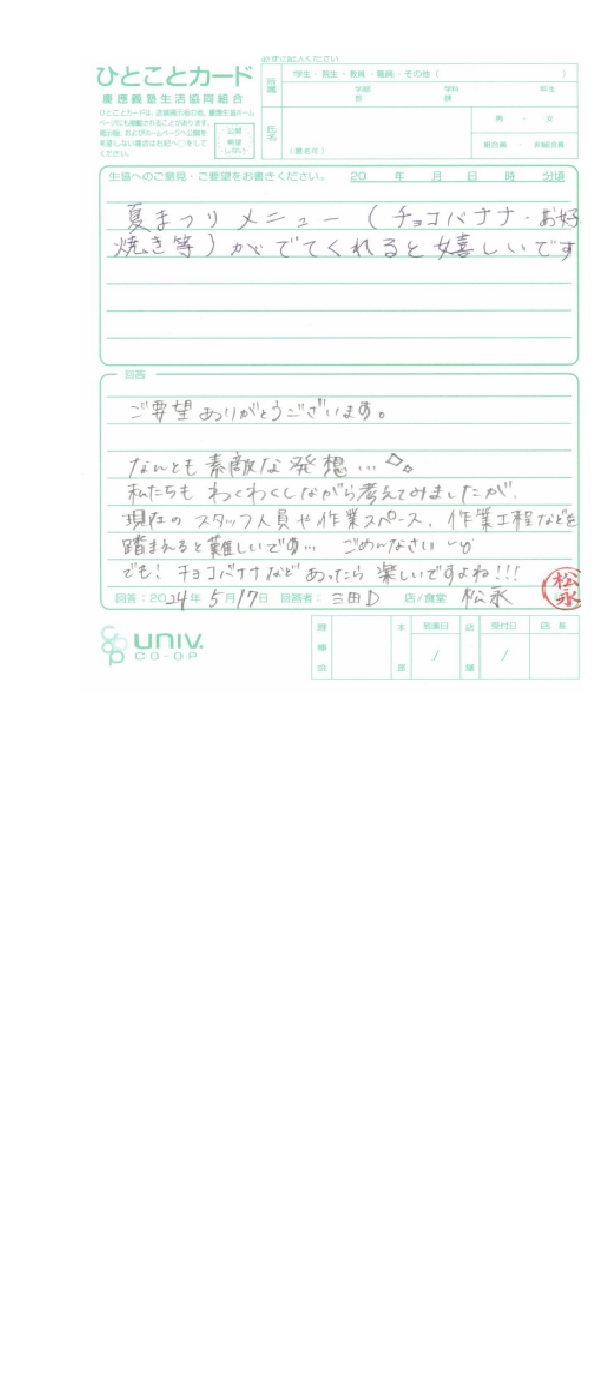 必ずご記入ください
ひとことカード
慶應義塾生活協同組合
ひとことカードは、店舗掲示板の他、慶應生協ホームページにも掲載されることがあります。
掲示板、およびホームページへ公開を
希望しない場合はお名へ○をして
ください。
公開
希望
しない
所属
学生・院生・教員・職員・その他（ ）
学部
学科
年生
氏名
（匿名可）
男 ・ 女
組合員 ・ 非組合員
生協へのご意見・ご要望をお書きください。 20 年 月 日 時 分頃
夏まつりメニュー（チョコバナナ・お好
焼き等）がでてくれると嬉しいです
回答
ご要望ありがとうございます。
なんとも素敵な発想…
私たちもわくわくしながら考えてみましたが、
現在のスタッフ人員や作業スペース、作業工程などを
踏まれると難しいです… ごめんなさい
でも！チョコバナナなどあったら楽しいですよね!!!
回答：2024年5月17日 回答者：三田D 店/食堂 松永
松永
UNIV.
CO-OP
理事会
本部
到着日
/
店舗
受付日
/
店長